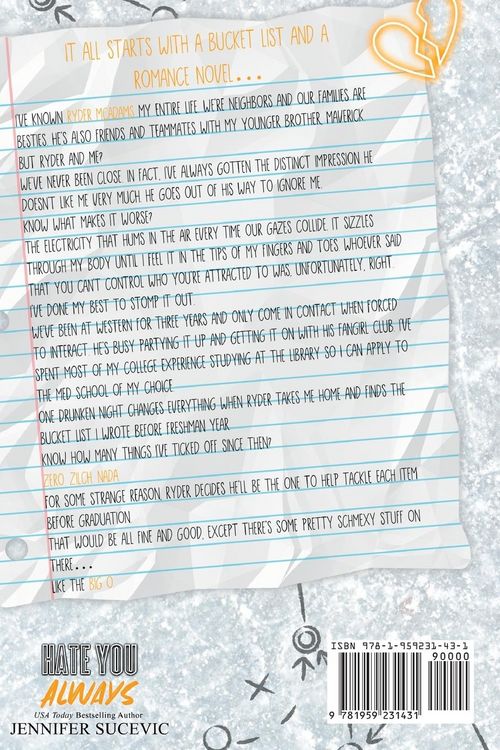 IT ALL STARTS WITH A BUCKET LIST AND A
ROMANCE NOVEL...
I'VE KNOWN RYDER MCADAMS MY ENTIRE LIFE. WE'RE NEIGHBORS AND OUR FAMILIES ARE
BESTIES. HE'S ALSO FRIENDS AND TEAMMATES WITH MY YOUNGER BROTHER, MAVERICK.
BUT RYDER AND ME?
WE'VE NEVER BEEN CLOSE. IN FACT, I'VE ALWAYS GOTTEN THE DISTINCT IMPRESSION HE
DOESN'T LIKE ME VERY MUCH. HE GOES OUT OF HIS WAY TO IGNORE ME.
KNOW WHAT MAKES IT WORSE?
THE ELECTRICITY THAT HUMS IN THE AIR EVERY TIME OUR GAZES COLLIDE. IT SIZZLES
THROUGH MY BODY UNTIL I FEEL IT IN THE TIPS OF MY FINGERS AND TOES. WHOEVER SAID
THAT YOU CAN'T CONTROL WHO YOU'RE ATTRACTED TO WAS, UNFORTUNATELY, RIGHT.
I'VE DONE MY BEST TO STOMP IT OUT.
WE'VE BEEN AT WESTERN FOR THREE YEARS AND ONLY COME IN CONTACT WHEN FORCED
TO INTERACT. HE'S BUSY PARTYING IT UP AND GETTING IT ON WITH HIS FANGIRL CLUB. I'VE
SPENT MOST OF MY COLLEGE EXPERIENCE STUDYING AT THE LIBRARY SO I CAN APPLY TO
THE MED SCHOOL OF MY CHOICE.
ONE DRUNKEN NIGHT CHANGES EVERYTHING WHEN RYDER TAKES ME HOME AND FINDS THE
BUCKET LIST I WROTE BEFORE FRESHMAN YEAR.
KNOW HOW MANY THINGS I'VE TICKED OFF SINCE THEN?
ZERO. ZILCH. NADA.
FOR SOME STRANGE REASON, RYDER DECIDES HE'LL BE THE ONE TO HELP TACKLE EACH ITEM
BEFORE GRADUATION.
THAT WOULD BE ALL FINE AND GOOD, EXCEPT THERE'S SOME PRETTY SCHMEXY STUFF ON
THERE...
LIKE THE BIG O.
HATE YOU
ALWAYS
USA Today Bestselling Author
JENNIFER SUCEVIC
ISBN 978-1-959231-43-1
90000
9 781959 231431